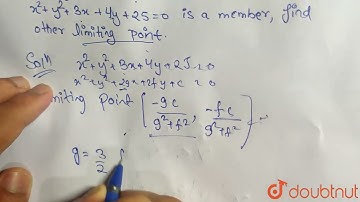 x²+y²+3x+4y+25=0 is a member, find
other limiting point.
Solⁿ
x²+y²+3x+4y+25=0
x²+y²+2gx+2fy+c=0
miting point [ -gc/g²+f², -fc/g²+f² ]
g = 3/2
doubtnut